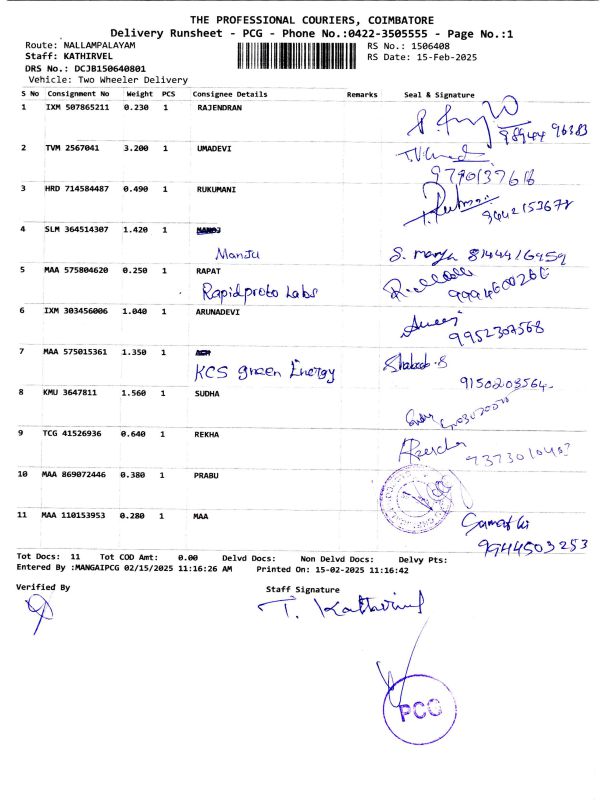 THE PROFESSIONAL COURIERS, COIMBATORE
Delivery Runsheet - PCG - Phone No.:0422-3505555 - Page No.:1
Route: NALLAMPALAYAM RS No.: 1506408
Staff: KATHIRVEL RS Date: 15-Feb-2025
DRS No.: DCJB150640801
Vehicle: Two Wheeler Delivery
S No Consignment No Weight PCS Consignee Details Remarks Seal & Signature
1 IXM 507865211 0.230 1 RAJENDRAN
98944 96383
2 TVM 2567041 3.200 1 UMADEVI
9790137618
3 HRD 714584487 0.490 1 RUKUMANI
9442153678
4 SLM 364514307 1.420 1
Manju S. Manju 8144416959
5 MAA 575804620 0.250 1 RAPAT
Rapidproto Labs 9994600266
6 IXM 303456006 1.040 1 ARUNADEVI
9952307568
7 MAA 575015361 1.350 1
KCS green Energy
9150203564
8 KMU 3647811 1.560 1 SUDHA
9 TCG 41526936 0.640 1 REKHA
7373010403
10 MAA 869072446 0.380 1 PRABU
11 MAA 110153953 0.280 1 MAA
9944503253
Tot Docs: 11 Tot COD Amt: 0.00 Delvd Docs: Non Delvd Docs: Delvy Pts:
Entered By :MANGAIPCG 02/15/2025 11:16:26 AM Printed On: 15-02-2025 11:16:42
Verified By Staff Signature
T. Kathirvel
PCG